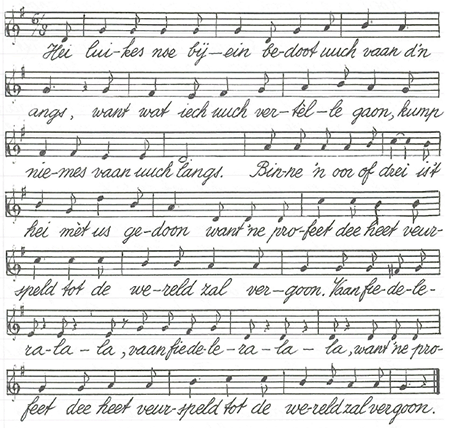 Hei lui-kes noe bij-ein be-doot uuch vaan d'n
angs, want wat iech uuch ver-tèl-le gaon, kump
nie-mes vaan uuch langs. Bin-ne 'n oor of drei is't
hei mèt us ge-doon want 'ne pro-feet dee heet veur-
speld tot de we-reld zal ver-goon. Vaan fie-de-le-
ra-la-la, vaan fie-de-le-ra-la-la, want 'ne pro-
feet dee heet veur-speld tot de we-reld zal vergoon.